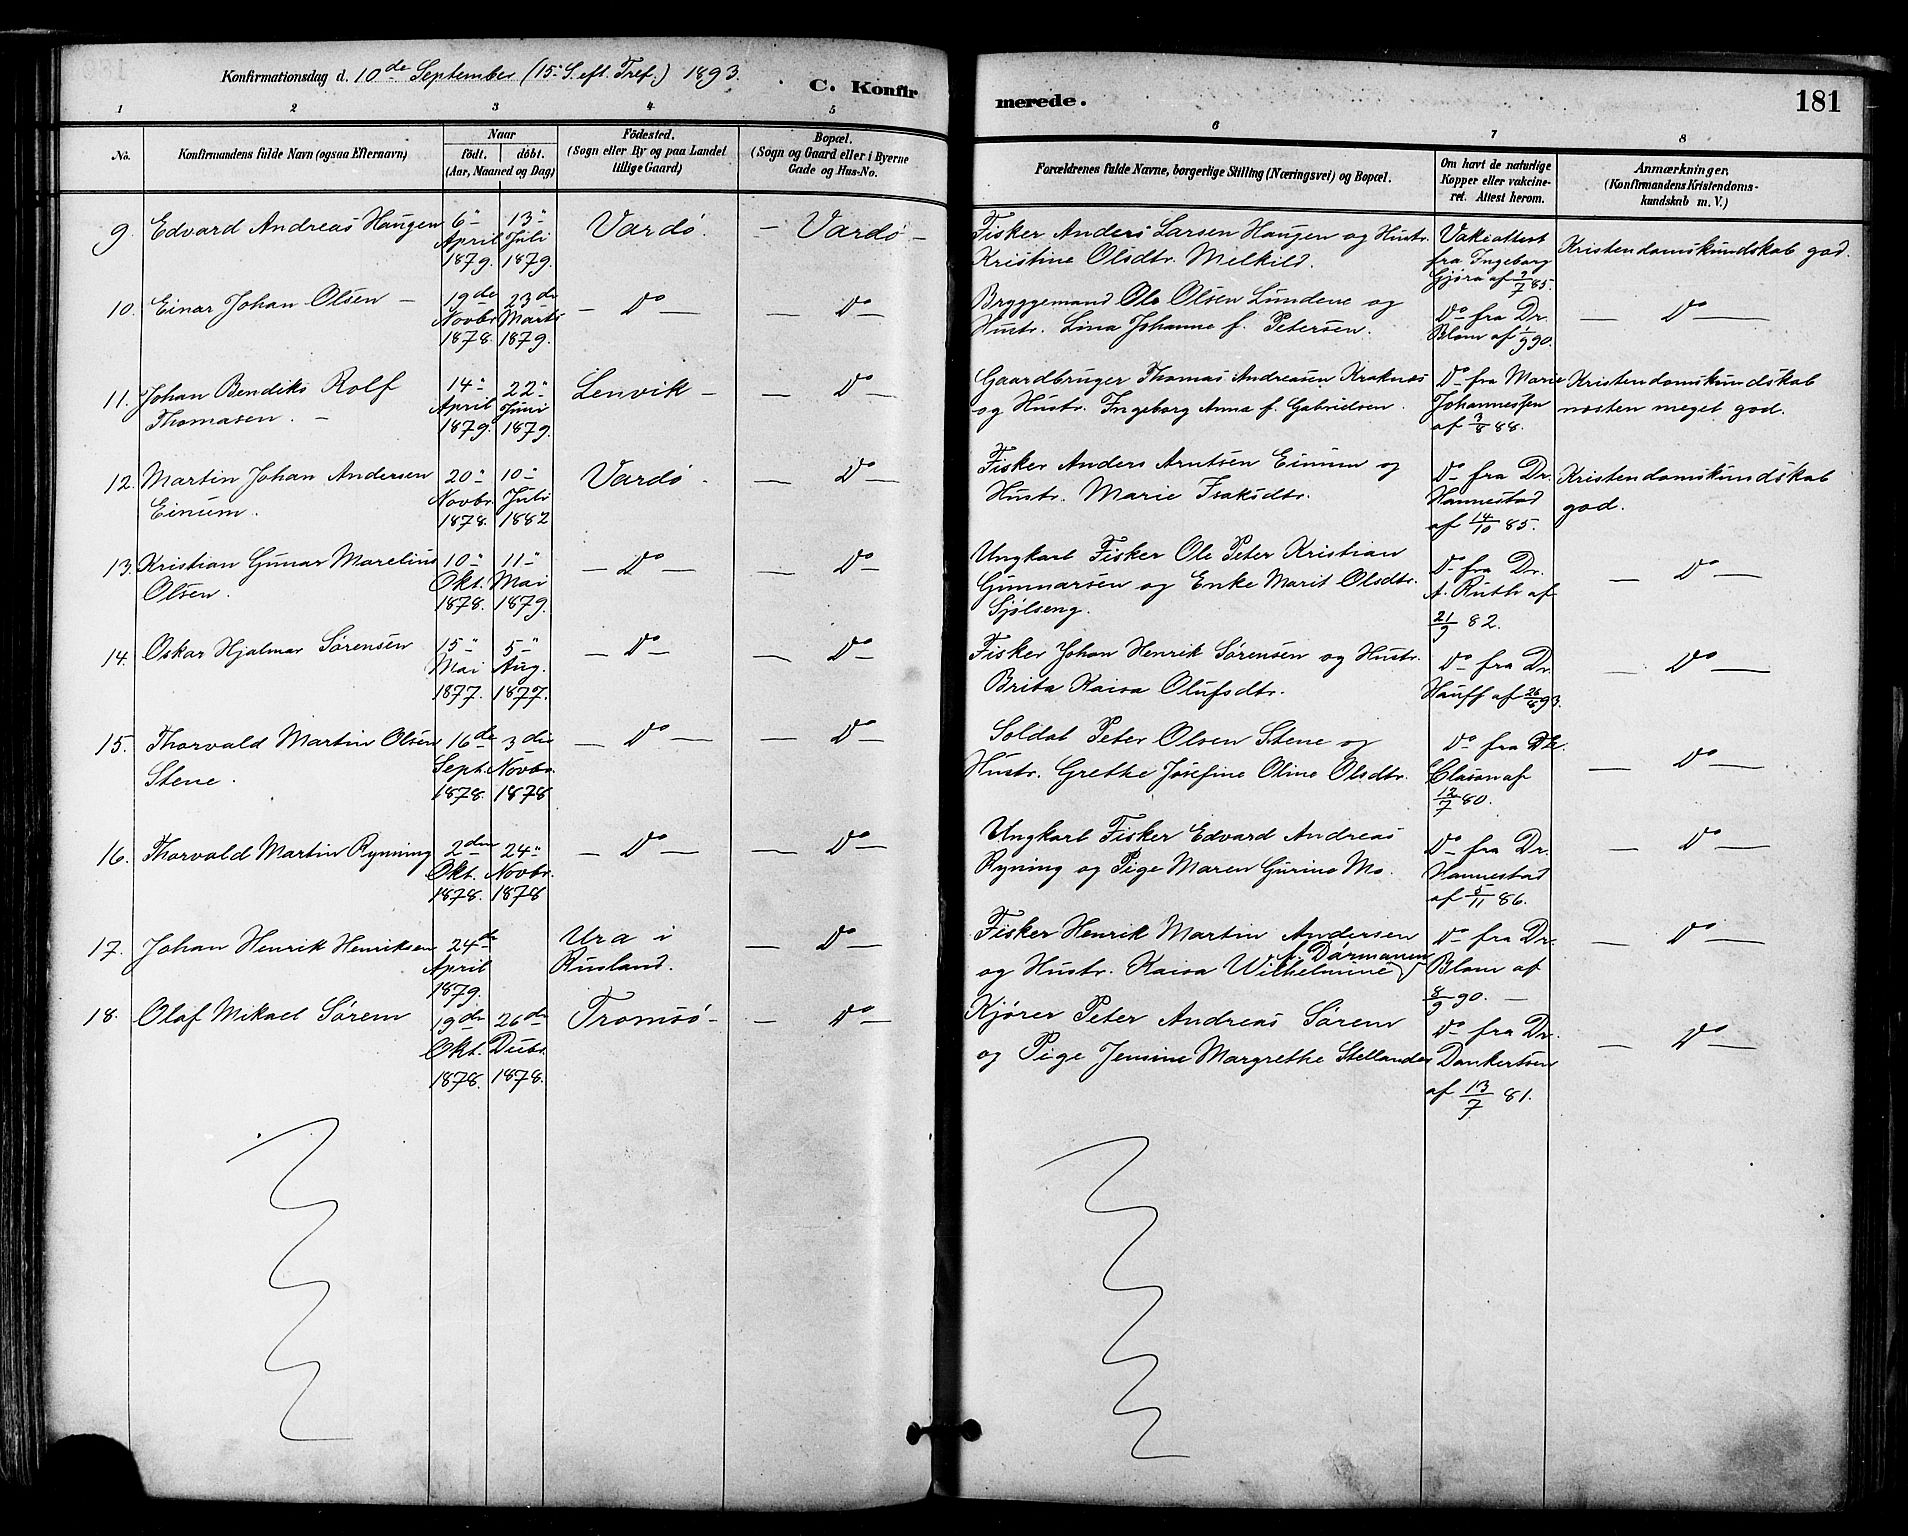 Konfirmationsdag d. 10de September (15. S. eft. Tref.) 1893.
C. Konfirmerede.
181
1 2 3 4 5 6 7 8
No.
Konfirmandens fulde Navn (ogsaa Efternavn)
Naar
födt. döbt.
(Aar, Maaned og Dag)
Födested.
(Sogn eller By og paa Landet
tillige Gaard)
Bopæl.
(Sogn og Gaard eller i Byerne
Gade og Hus-No.
Forældrenes fulde Navne, borgerlige Stilling (Næringsvei) og Bopæl.
Om havt de naturlige
Kopper eller vakcine-
ret. Attest herom.
Anmærkninger,
(Konfirmandens Kristendoms-
kundskab m. V.)
9. Edvard Andreas Haugen
6" April 1879.
13" Juli 1879.
Vardö.
— Vardö —
Fisker Anders Larsen Haugen og Hustr.
Kristine Olsdtr. Melkild.
Vakcattest
fra Ingeborg
Gjöra af 9/7 85.
Kristendomskundskab god.
10. Einar Johan Olsen —
19de Novbr. 1878.
23de Marts 1879.
— Do —
— Do —
Bryggemand Ole Olsen Lundene og
Hustr. Lina Johanne f. Petersen.
Do fra Dr.
Blom af 1/9 90.
— Do —
11. Johan Bendiks Rolf
Thomasen. —
14" April 1879.
22" Juni 1879.
Lenvik —
— Do —
Gaardbruger Thomas Andreasen Kraknes
og Hustr. Ingeborg Anna f. Gabrielsen.
Do fra Marie
Johannessen
af 3/8 88.
Kristendomskundskab
næsten meget god.
12. Martin Johan Andersen
Einum.
20" Novbr. 1878.
10" Juli 1882
Vardö.
— Do —
Fisker Anders Arntsen Einum og
Hustr. Marie Isaksdtr.
Do fra Dr.
Hannestad
af 14/10 85.
Kristendomskundskab
god.
13. Kristian Gunar Marelius
Olsen.
10" Okt. 1878.
11" Mai 1879.
— Do —
— Do —
Ungkarl Fisker Ole Peter Kristian
Gunnarsen og Enke Marit Olsdtr.
Sjölseng.
Do fra Dr.
A. Ruth af
21/9 82.
— Do —
14. Oskar Hjalmar Sörensen
15" Mai 1877.
5" Aug. 1877.
— Do —
— Do —
Fisker Johan Henrik Sörensen og Hustr.
Brita Kaisa Olufsdtr.
Do fra Dr.
Hauff af 26/8 93.
— Do —
15. Thorvald Martin Olsen
Stene.
16de Sept. 1878.
3die Novbr. 1878
— Do —
— Do —
Soldat Peter Olsen Stene og
Hustr. Grethe Josefine Oline Olsdtr.
Do fra Dr.
Clason af
12/7 80.
— Do —
16. Thorvald Martin Rynning
2den Okt. 1878.
24" Novbr. 1878
— Do —
— Do —
Ungkarl Fisker Edvard Andreas
Ryning og Pige Maren Gurine Mo.
Do fra Dr.
Hannestad
af 5/11 86.
— Do —
17. Johan Henrik Henriksen
24de April 1879.
Ura i
Rusland.
— Do —
Fisker Henrik Martin Andersen
og Hustr. Kaisa Wilhelmine f. Dörmanen
Do fra Dr.
Blom af
8/9 90. —
— Do —
18. Olaf Mikael Sörem
19de Okt. 1878.
26de Dcbr. 1878.
Tromsö —
— Do —
Kjörer Peter Andreas Sörem
og Pige Jensine Margrethe Stellander
Do fra Dr.
Dankertsen
af 13/7 81.
— Do —